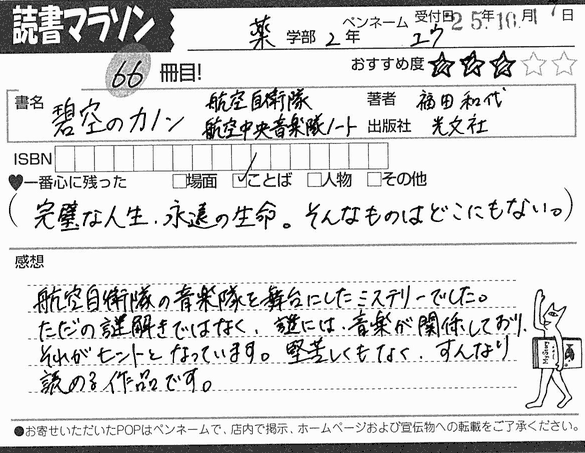 読書マラソン
薬 学部 2 年 ペンネーム ユウ 受付日 25年10月17日
66 冊目!
おすすめ度 ★★★☆☆
書名 碧空のカノン 航空自衛隊 航空中央音楽隊ノート
著者 福田和代
出版社 光文社
ISBN
♥一番心に残った □場面 ☑ことば □人物 □その他
(完璧な人生、永遠の生命。そんなものはどこにもない。)
感想
航空自衛隊の音楽隊を舞台にしたミステリーでした。
ただの謎解きではなく、謎には、音楽が関係しており、
それがヒントとなっています。堅苦しくもなく、すんなり
読める作品です。
●お寄せいただいたPOPはペンネームで、店内で掲示、ホームページおよび宣伝物への転載をご了承ください。